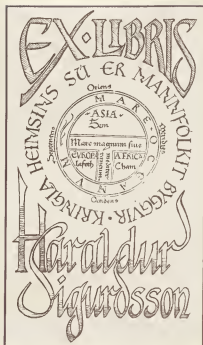 EX·LIBRIS
KRINGLA HEIMSINS SÚ ER MANNFÓLKIT BYGGVIR ·
Oriens
MARE · OCEANUM
ASIA
Sem
Mare magnum siue
EVROPA
Iafeth
AFRICA
Cham
Occidens
Haraldur
Sigurðsson